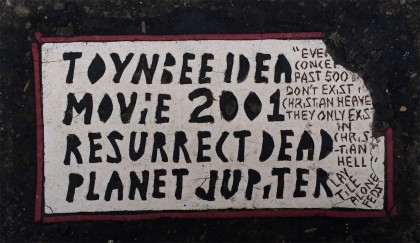 TOYNBEE IDEA
MOViE 2001
RESURRECT DEAD
PLANET JUPiTER
"EVE
CONCE
PAST 500
DON'T EXIST
CHRISTIAN HEAVE
THEY ONLY EXIS
IN
CHRIS
TIAN
HELL
LAY
TILE
ALONE
FEDS